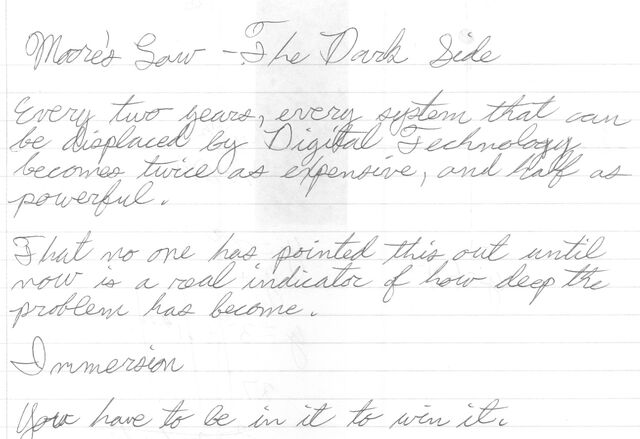 Moore's Law - The Dark Side
Every two years, every system that can
be displaced by Digital Technology
becomes twice as expensive, and half as
powerful.
That no one has pointed this out until
now is a real indicator of how deep the
problem has become.
Immersion
You have to be in it to win it.